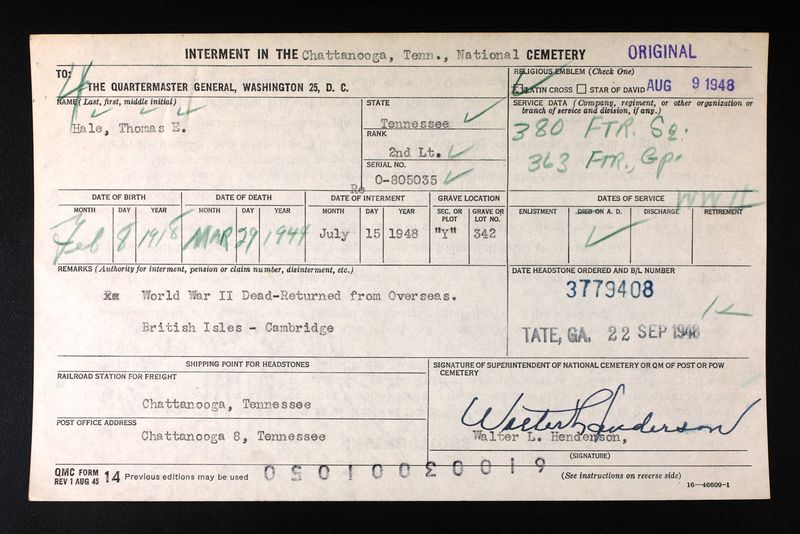 INTERMENT IN THE Chattanooga, Tenn., National CEMETERY
ORIGINAL
TO:
THE QUARTERMASTER GENERAL, WASHINGTON 25, D. C.
RELIGIOUS EMBLEM (Check One)
LATIN CROSS STAR OF DAVID AUG 9 1948
NAME (Last, first, middle initial)
Hale, Thomas E.
STATE
Tennessee
RANK
2nd Lt.
SERIAL NO.
O-805035
SERVICE DATA (Company, regiment, or other organization or branch of service and division, if any.)
380 FTR. Sq.
363 FTR., Gp.
DATE OF BIRTH
MONTH DAY YEAR
Feb 8 1918
DATE OF DEATH
MONTH DAY YEAR
MAR 29 1944
Re
DATE OF INTERMENT
MONTH DAY YEAR
July 15 1948
GRAVE LOCATION
SEC. OR PLOT GRAVE OR LOT NO.
"Y" 342
DATES OF SERVICE WW II
ENLISTMENT DIED ON A. D. DISCHARGE RETIREMENT
REMARKS (Authority for interment, pension or claim number, disinterment, etc.)
World War II Dead-Returned from Overseas.
British Isles - Cambridge
DATE HEADSTONE ORDERED AND B/L NUMBER
3779408
TATE, GA. 22 SEP 1948
SHIPPING POINT FOR HEADSTONES
RAILROAD STATION FOR FREIGHT
Chattanooga, Tennessee
POST OFFICE ADDRESS
Chattanooga 8, Tennessee
SIGNATURE OF SUPERINTENDENT OF NATIONAL CEMETERY OR QM OF POST OR POW CEMETERY
Walter L. Henderson
Walter L. Henderson,
(SIGNATURE)
QMC FORM
REV 1 AUG 45 14 Previous editions may be used
(See instructions on reverse side)
16-46609-1